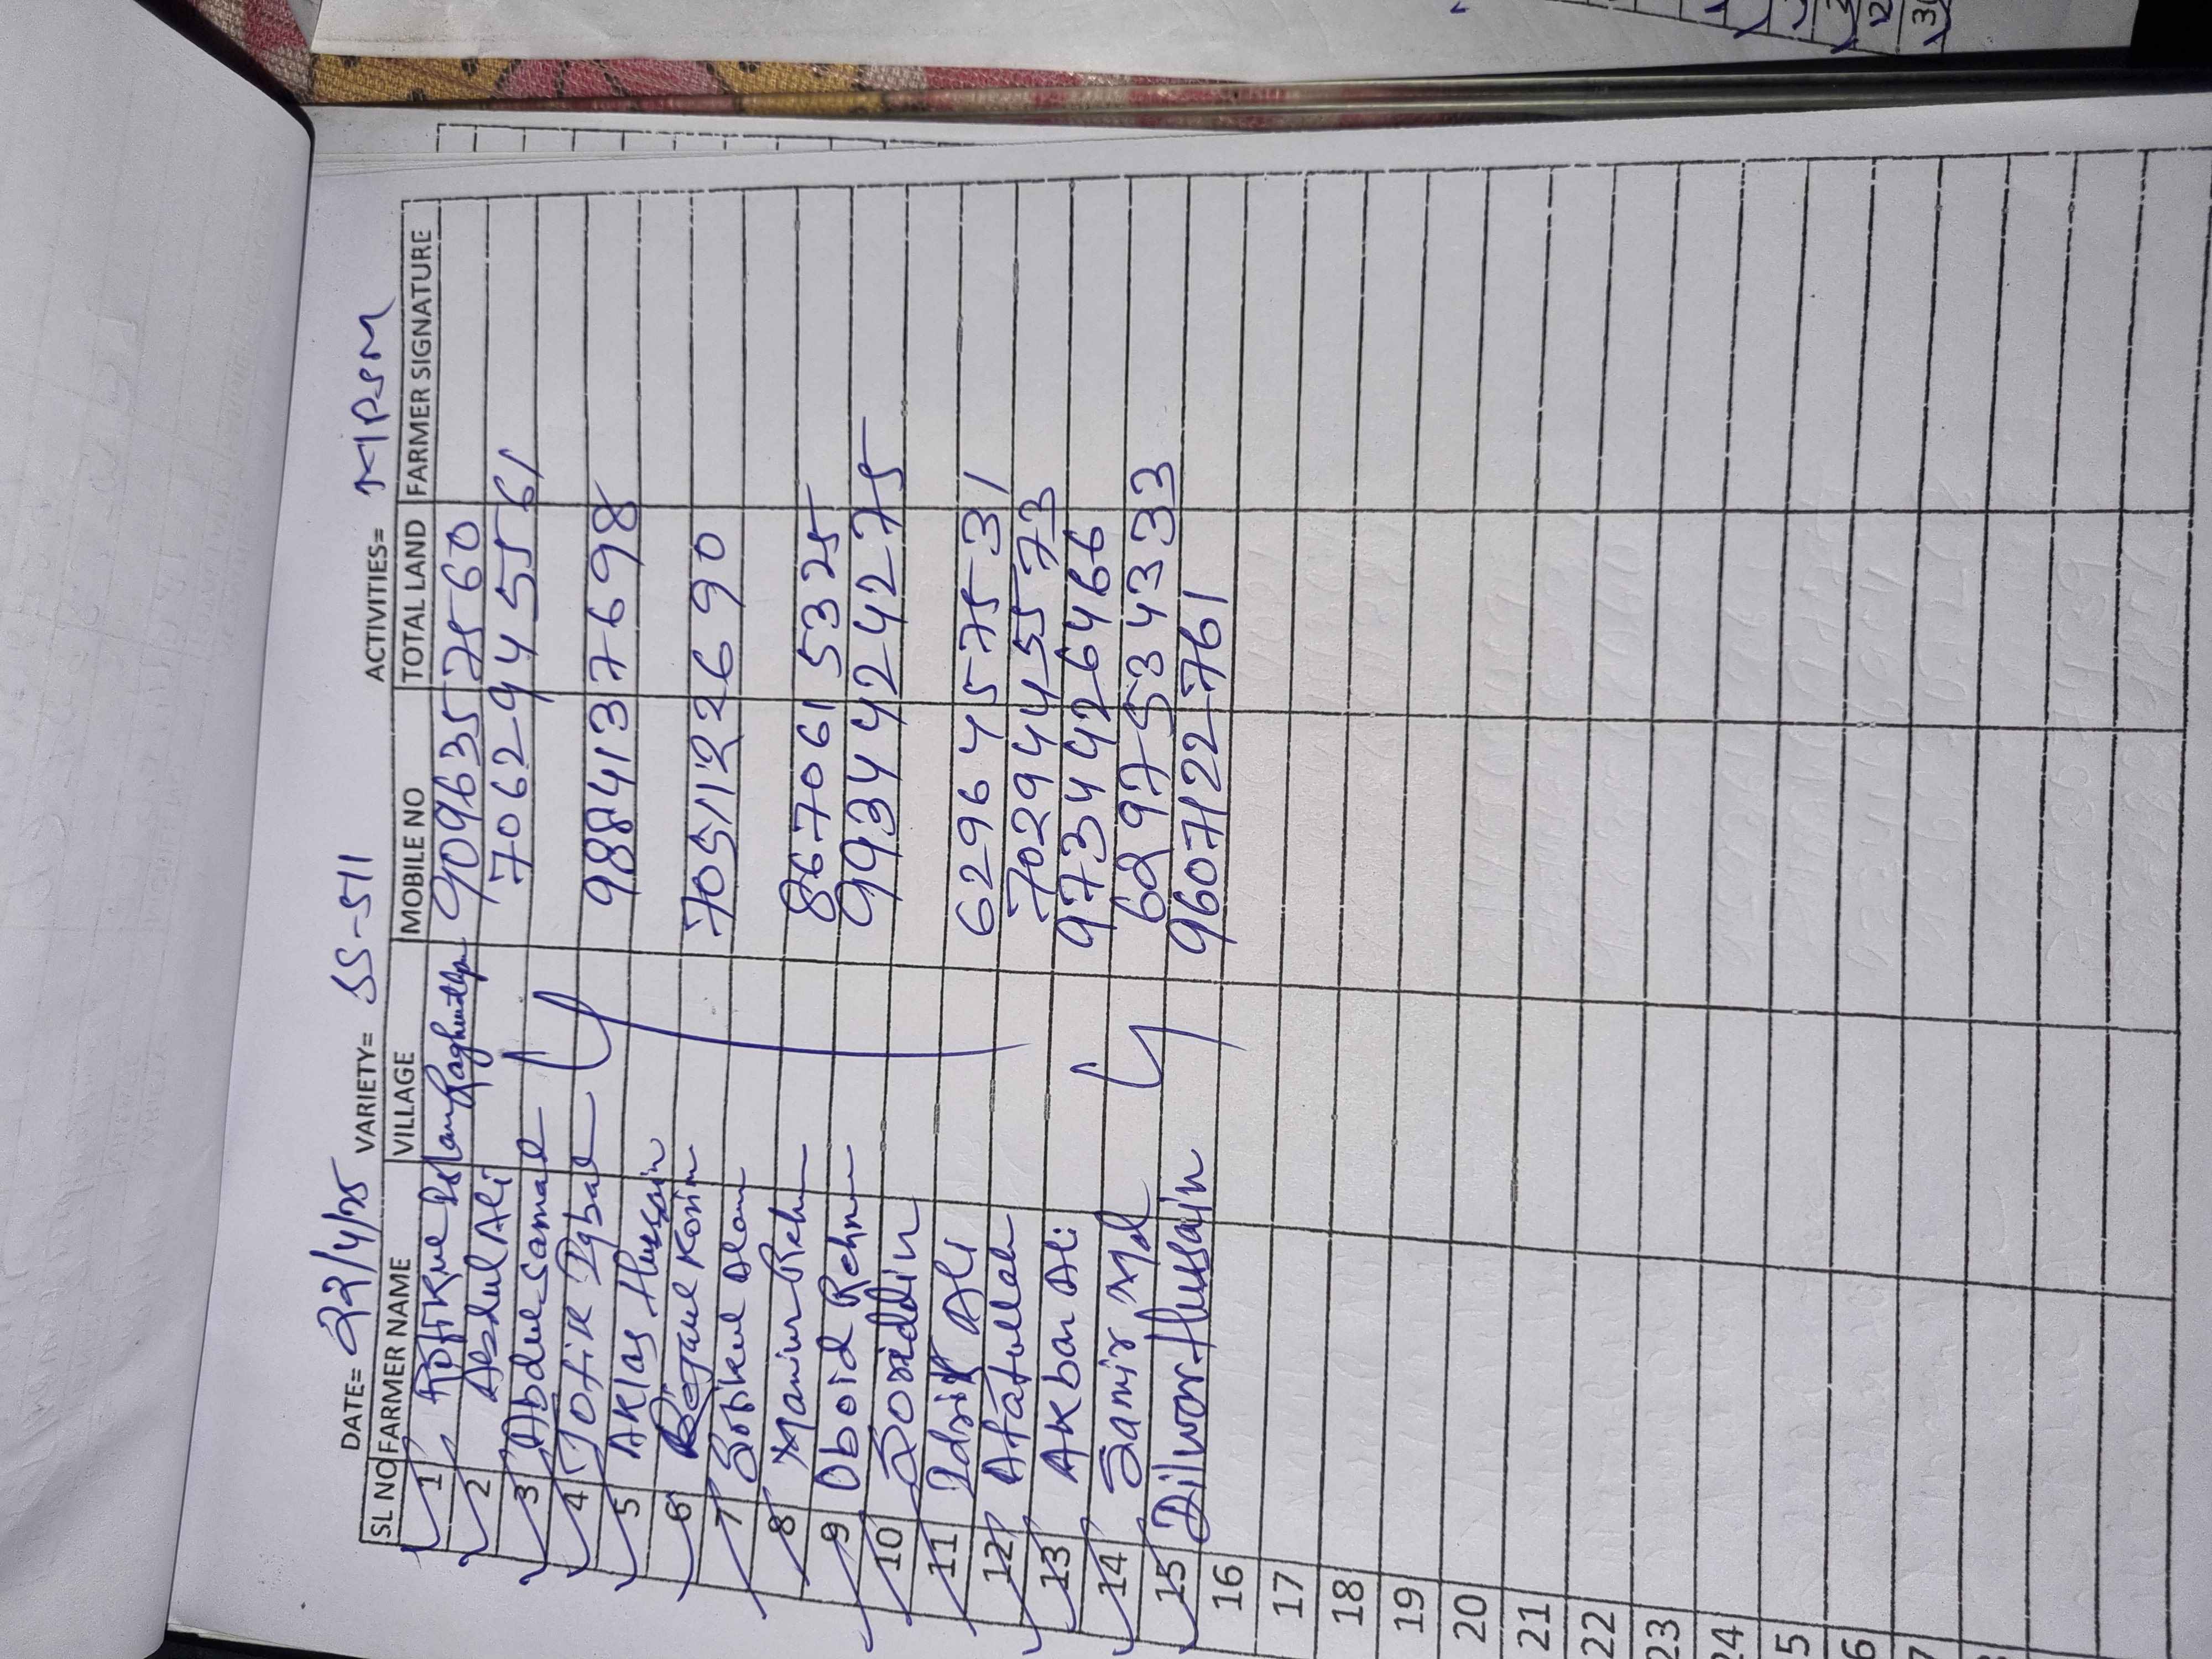 DATE= 22/4/25 VARIETY= SS-511 ACTIVITIES= MPSM
SL NO FARMER NAME VILLAGE MOBILE NO TOTAL LAND FARMER SIGNATURE
1 Rofikul Islam 9096352560
2 Abdul Ali 7062945561
3 Abdul Samad
4 Tofik Iqbal 9884137698
5 Aklas Hussain
6 Rejaul Korim 7051122690
7 Sofikul Alam
8 Maniur Rehn 8670615325
9 Oboid Rehn 9934424275
10 Soriddin
11 Idris Ali 6296457531
12 Afatullah 7029445573
13 Akbar Ali 9734426466
14 Samir Md 6297534333
15 Dilwar Hussain 9607122761
16
17
18
19
20
21
22
23
24
5
6
7